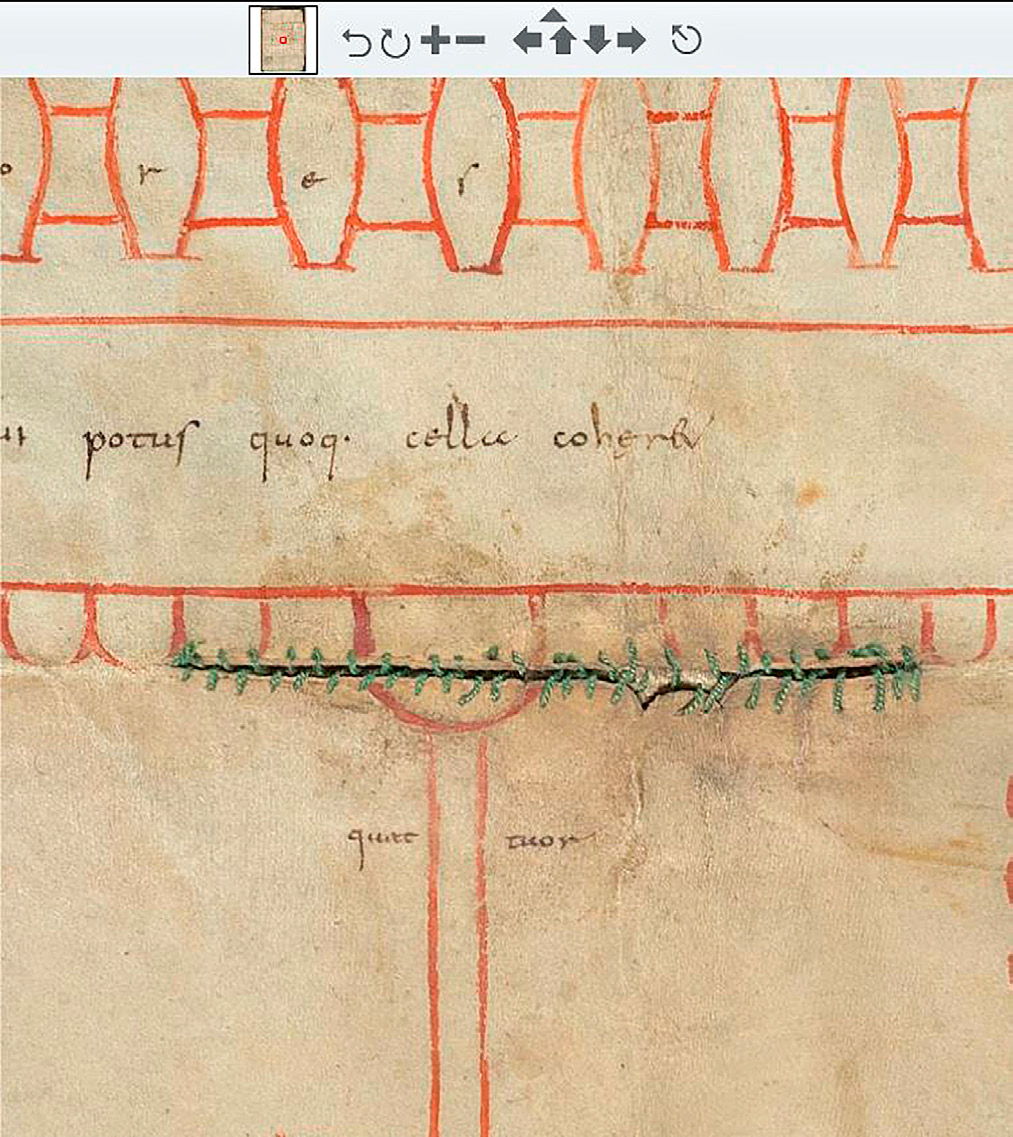 o r e s
ui potus quoq· cella coher&
quat tuor